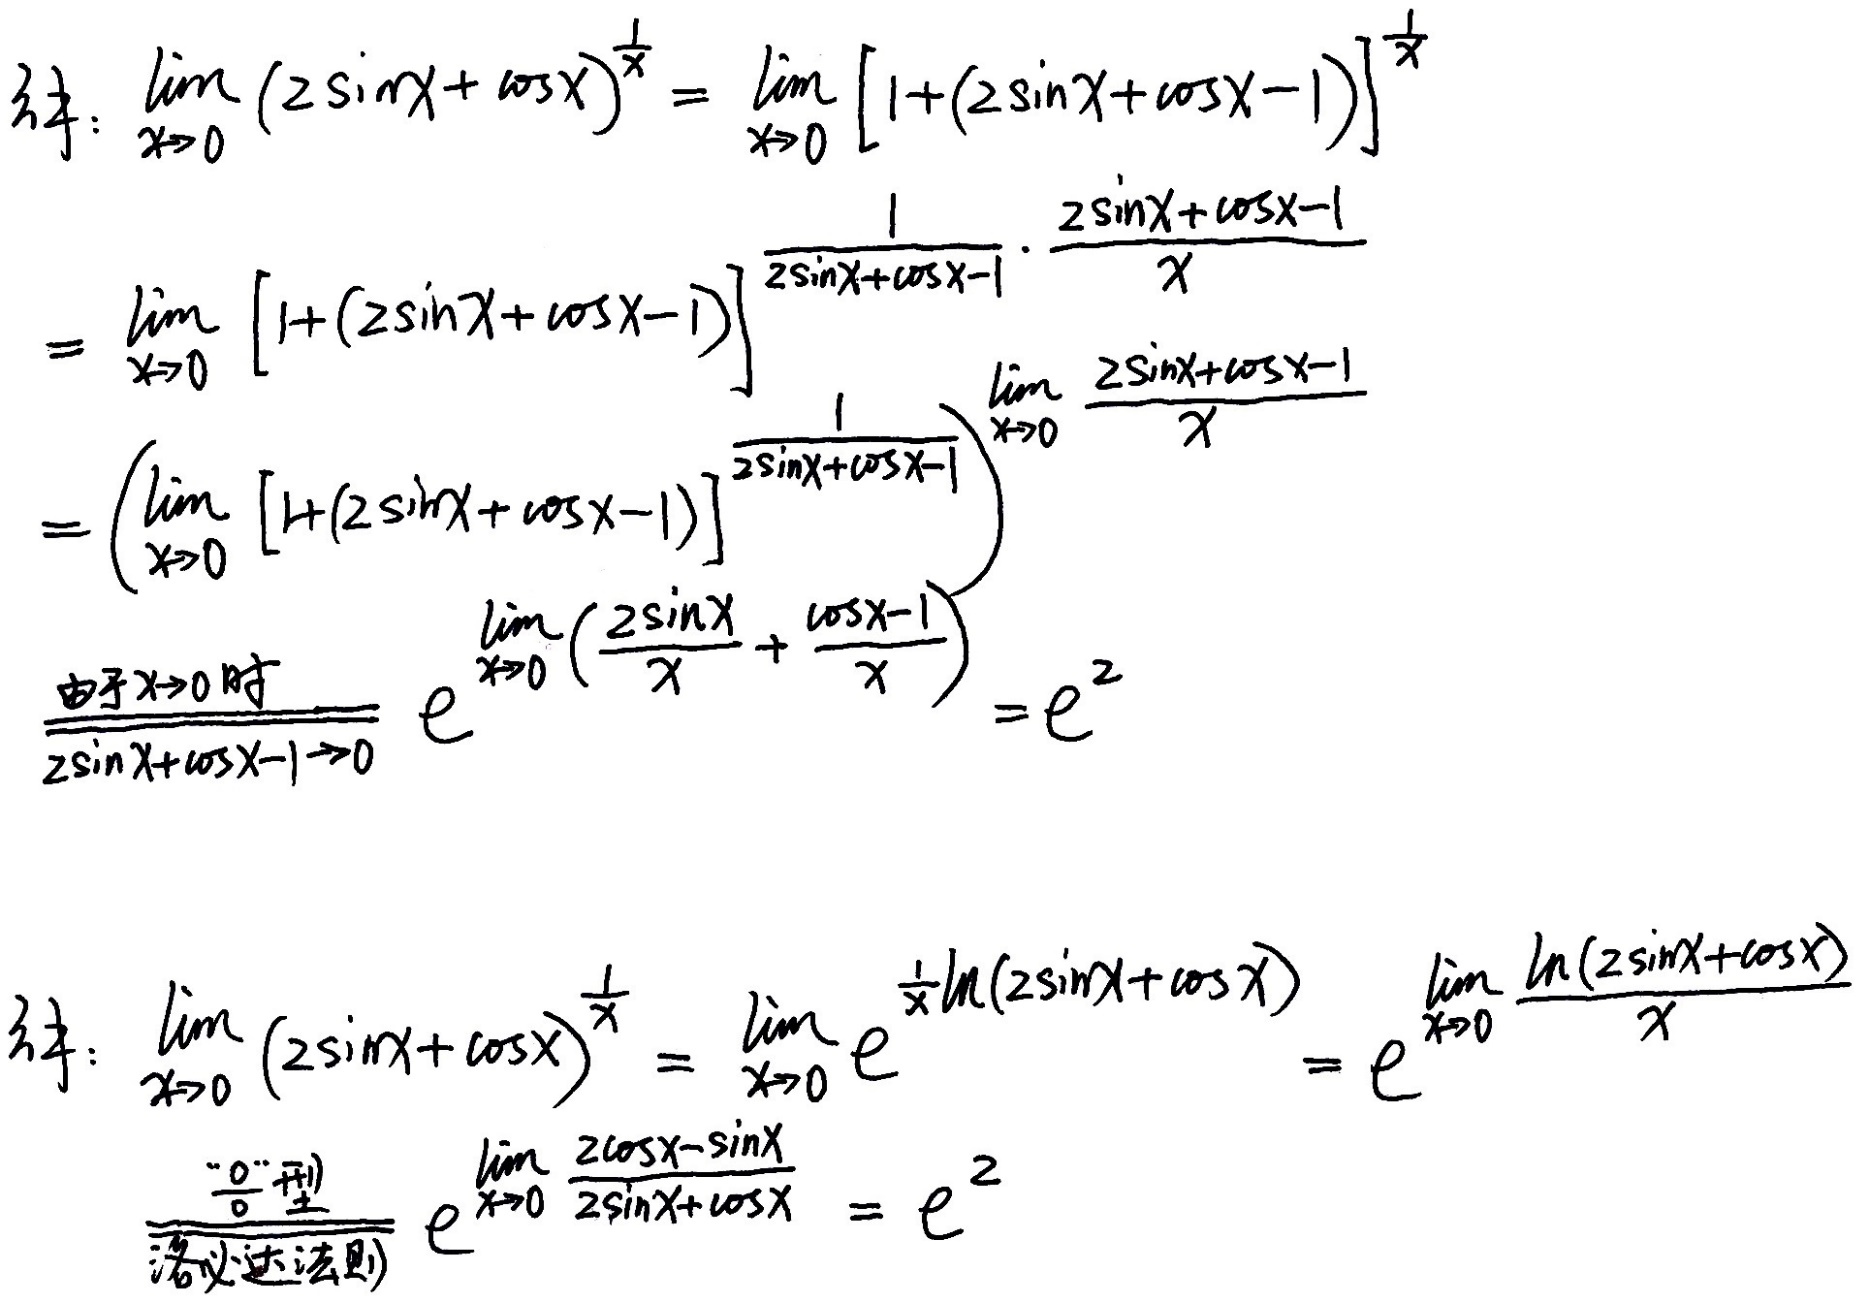 解: lim_{x→0} (2sinx+cosx)^{1/x} = lim_{x→0} [1+(2sinx+cosx-1)]^{1/x}
= lim_{x→0} [1+(2sinx+cosx-1)]^{\frac{1}{2sinx+cosx-1} · \frac{2sinx+cosx-1}{x}}
= (lim_{x→0} [1+(2sinx+cosx-1)]^{\frac{1}{2sinx+cosx-1}})^{lim_{x→0} \frac{2sinx+cosx-1}{x}}
由于x→0时
2sinx+cosx-1→0
e^{lim_{x→0} (\frac{2sinx}{x} + \frac{cosx-1}{x})} = e^2
解: lim_{x→0} (2sinx+cosx)^{1/x} = lim_{x→0} e^{\frac{1}{x}ln(2sinx+cosx)} = e^{lim_{x→0} \frac{ln(2sinx+cosx)}{x}}
"0/0"型
洛必达法则
e^{lim_{x→0} \frac{2cosx-sinx}{2sinx+cosx}} = e^2